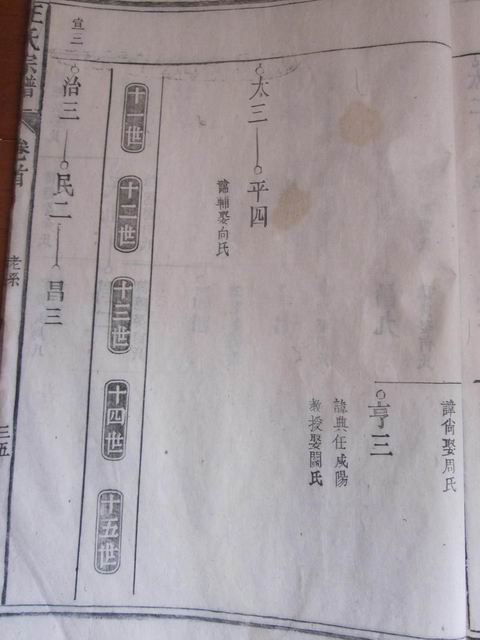 諱尙娶周氏
亨三
諱典任咸陽
教授娶氏
太三
平四
諱輔娶向氏
十一世
十二世
十三世
十四世
十五世
宣三
治三
民二
昌三
氏宗譜
卷首
老系
三五